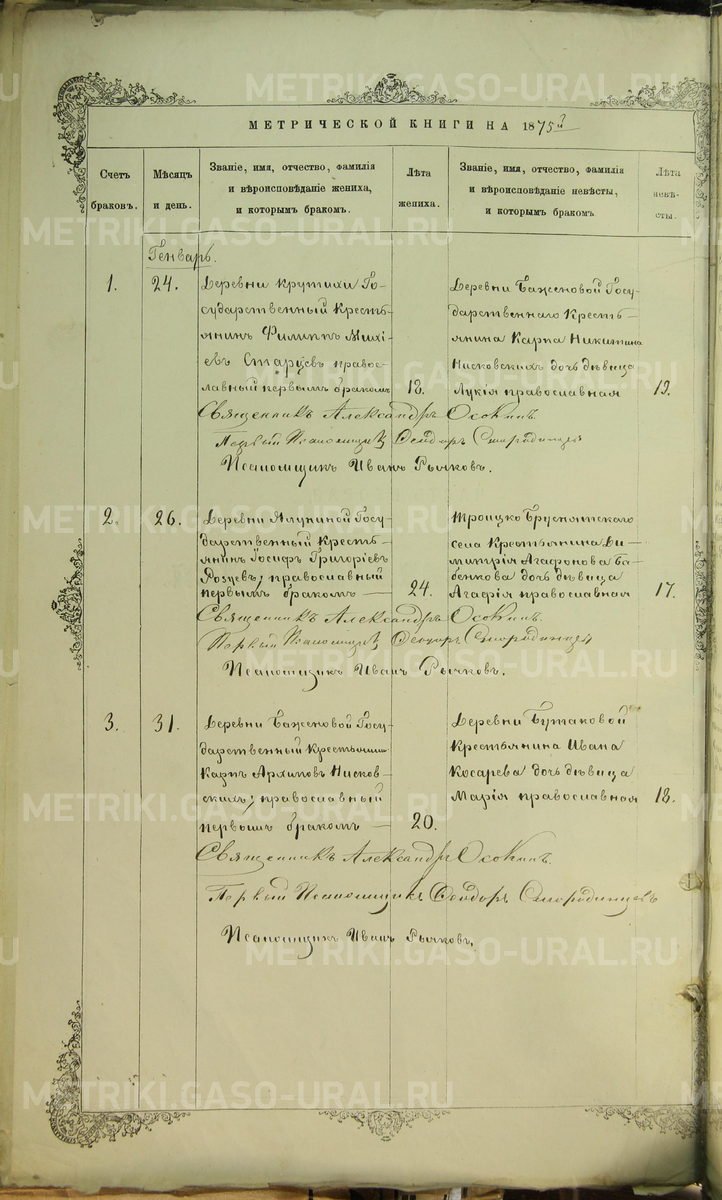 METRIKI.GASO-URAL.RU
МЕТРИЧЕСКОЙ КНИГИ НА 1875й
Счетъ браковъ.
Мѣсяцъ и день.
Званіе, имя, отчество, фамилія
и вѣроисповѣданіе жениха,
и которымъ бракомъ.
Лѣта жениха.
Званіе, имя, отчество, фамилія
и вѣроисповѣданіе невѣсты,
и которымъ бракомъ
Лѣта невѣсты.
Генварь.
1.
24.
Деревни Крутихи Го-
сударственный Кресть-
янинъ Филиппъ Михі-
евъ Старцевъ правос-
лавный первымъ бракомъ
18.
Деревни Баженовой Госу-
дарственнаго Кресть-
янина Карпа Никитина
Нисковскихъ дочь дѣвица
Лукія православная
19.
Священникъ Александръ Осокинъ.
Первый Псаломщикъ Ѳеодоръ Смородинцевъ
Псаломщикъ Иванъ Рычковъ.
2.
26.
Деревни Ялуниной Госу-
дарственный Кресть-
янинъ Іосифъ Григоріевъ
православный
первымъ бракомъ —
24.
Троицко Бруснятскаго
села Крестьянина Ди-
митрія Агафонова Ба-
бенкова дочь дѣвица
Агафія православная
17.
Священникъ Александръ Осокинъ.
Первый Псаломщикъ Ѳеодоръ Смородинцевъ
Псаломщикъ Иванъ Рычковъ.
3.
31.
Деревни Баженовой Госу-
дарственный Крестьянинъ
Карпъ Архиповъ Нисков-
скихъ, православный
первымъ бракомъ —
20.
Деревни Бутаковой
Крестьянина Ивана
Косарева дочь дѣвица
Марія православная
18.
Священникъ Александръ Осокинъ.
Первый Псаломщикъ Ѳеодоръ Смородинцевъ
Псаломщикъ Иванъ Рычковъ.